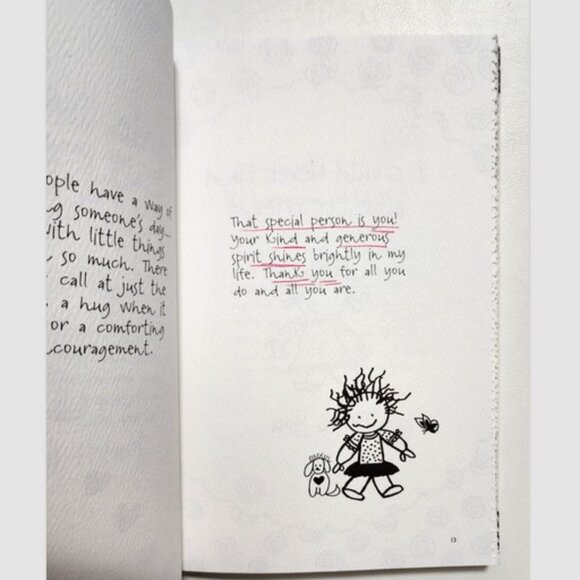 people have a way of
someone's day—
with little things
so much. There
call at just the
a hug when it
or a comforting
encouragement.
That special person is you!
Your kind and generous
spirit shines brightly in my
life. Thank you for all you
do and all you are.
13